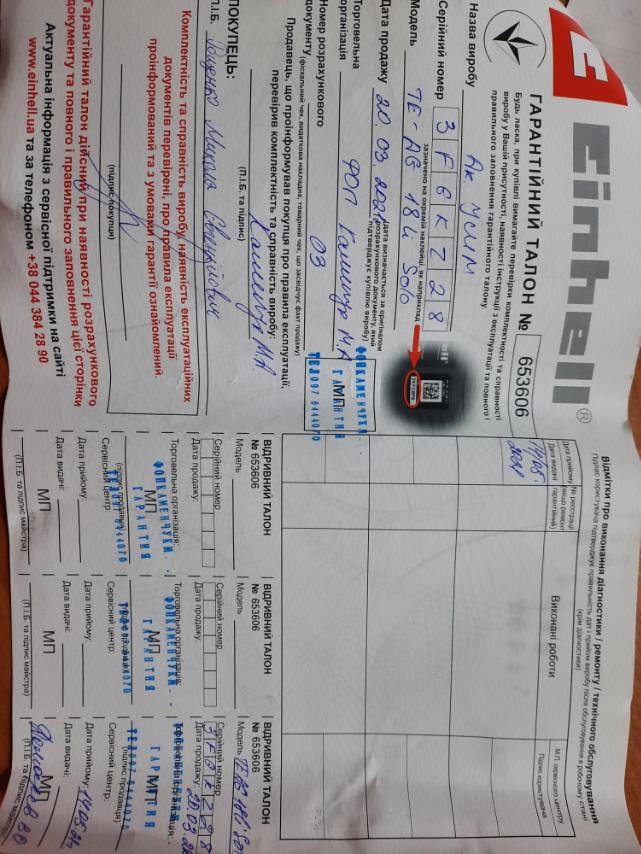 Einhell®
ГАРАНТІЙНИЙ ТАЛОН № 653606
Будь ласка, при купівлі вимагайте перевірки комплектності та справності
виробу у Вашій присутності, наявності інструкції з експлуатації та повного і
правильного заповнення гарантійного талону.
Назва виробу Ак УШМ
Серійний номер 3F6KZ228
зазначено на окремій наклейці, як наприклад
Модель TE-AG 18 Li Solo
Дата продажу 20.03.2021
(дата визначається за оригіналом
розрахункового документу, який
підтверджує купівлю виробу)
Торговельна
організація ФОП
Номер розрахункового
документу 03
(фіскальний чек, видаткова накладна, товарний чек, що засвідчує факт продажу)
Продавець, що проінформував покупця про правила експлуатації,
перевірив комплектність та справність виробу:
(П.І.Б. та підпис)
ФОПКАМЕНЧУК.
МП
ГАРАНТИЯ
ТЕЛ097 6444070
ПОКУПЕЦЬ:
П.І.Б. Микола
Комплектність та справність виробу, наявність експлуатаційних
документів перевірені, про правила експлуатації
проінформований та з умовами гарантії ознайомлений.
(підпис покупця)
Гарантійний талон дійсний при наявності розрахункового
документу та повного і правильного заповнення цієї сторінки
Актуальна інформація з сервісної підтримки на сайті
www.einhell.ua та за телефоном +38 044 384 28 90
Відмітки про виконання діагностики / ремонту / технічного обслуговування
Підпис користувача підтверджує правильність дат і прийом виробу після обслуговування в робочому стані
(крім діагностики)
Дата прийому
Дата видачі
№ реєстрації
(якщо ремонт
гарантійний)
Виконані роботи
М.П. сервісного центру
Підпис користувача
14.05.
2021
ВІДРИВНИЙ ТАЛОН
№ 653606
Модель
Серійний номер
Дата продажу:
Торговельна організація:
ФОПКАМЕНЧУК.
МП
ГАРАНТИЯ
(підпис продавця)
ТЕЛ097 6444070
Сервісний центр:
Дата прийому:
Дата видачі:
МП
(П.І.Б. та підпис майстра)
ВІДРИВНИЙ ТАЛОН
№ 653606
Модель
Серійний номер
Дата продажу:
Торговельна організація:
ФОПКАМЕНЧУК.
МП
ГАРАНТИЯ
ТЕЛ097 6444070
Сервісний центр:
Дата прийому:
Дата видачі:
МП
(П.І.Б. та підпис майстра)
ВІДРИВНИЙ ТАЛОН
№ 653606
Модель
Серійний номер
3F6KZ228
Дата продажу: 20.03.
МП
ГАРАНТИЯ
(підпис продавця)
ТЕЛ097 6444070
Сервісний центр:
Дата прийому: 14.05.
Дата видачі:
МП
(П.І.Б. та підпис майстра)